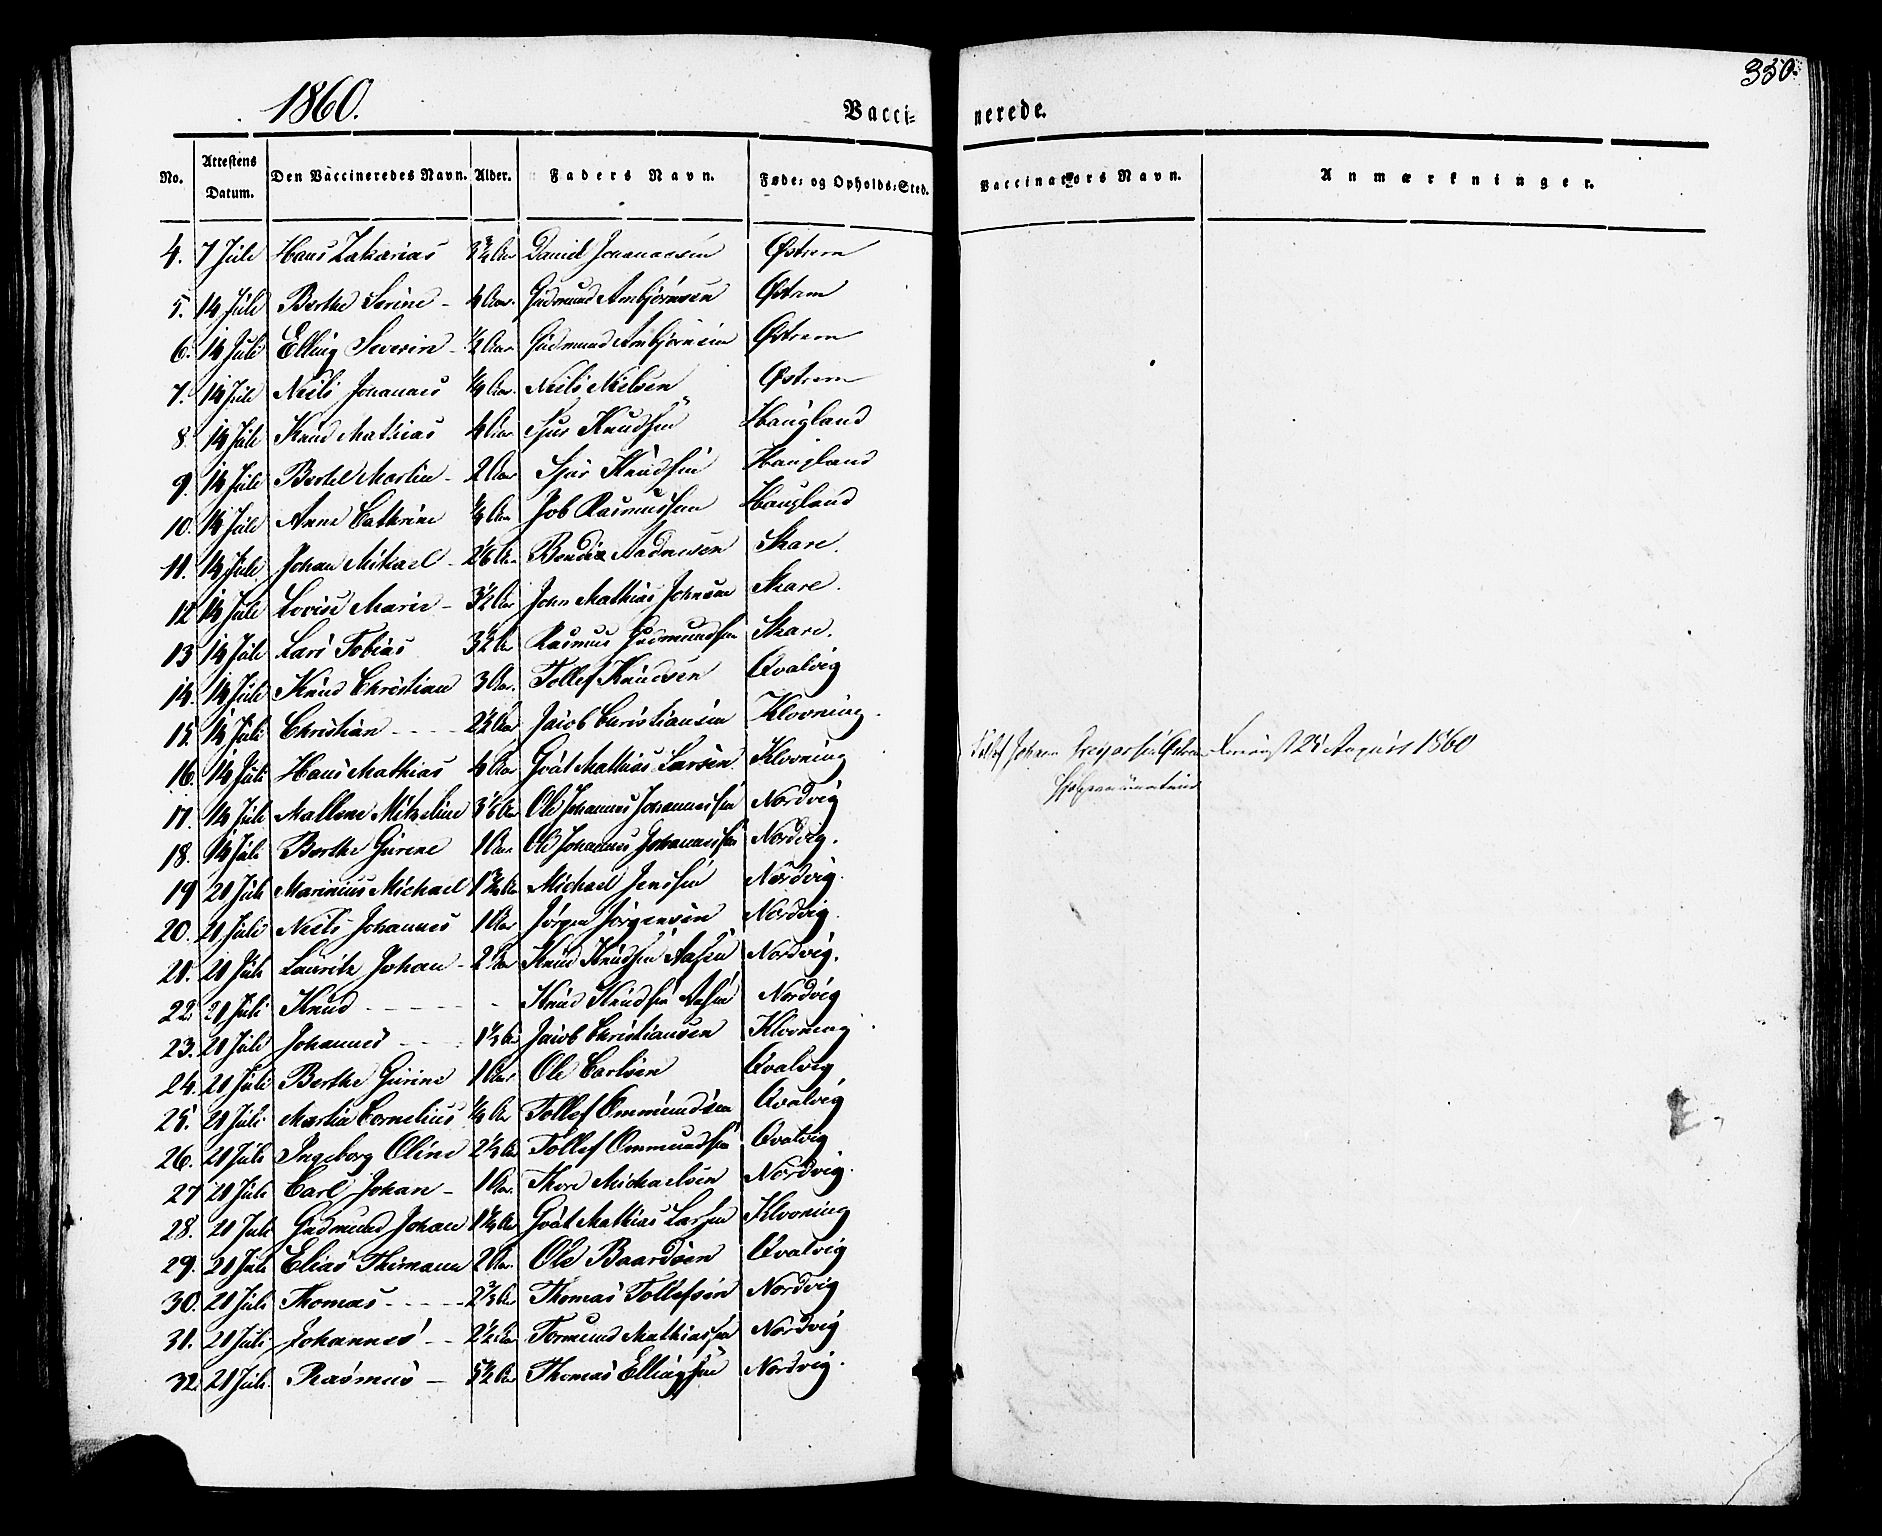 350.
1860.
Vacci- nerede.
No. Attestens Datum. Den Vaccineredes Navn. Alder. Faders Navn. Føde- og Opholds-Sted. Vaccinateurs Navn. Anmærkninger.
4. 7 Juli Hans Zakarias Aar Daniel Johannesen Østrem
5. 14 Juli Berthe Serine - 4 Aar. Gudmund Ambjørnsen Østrem
6. 14 Juli Elling Severin - ½ Aar Gudmund Ambjørnsen Østrem
7. 14 Juli Neils Johannes Aar. Neils Nielsen Østrem
8. 14 Juli Knud Mathias 4 Aar Sjur Knudsen Haugland
9. 14 Juli Berthel Martin - 2 Aar Sjur Knudsen Haugland
10. 14 Juli Anne Cathrine Aar Job Rasmussen Haugland
11. 14 Juli Johan Mikael - Aar Bendix Aadnesen Skare.
12 14 Juli Lovise Marie - 3½ Aar John Mathias Johnsen Skare.
13 14 Juli Lars Tobias 3½ Aar Rasmus Gudmundsen Skare.
14. 14 Juli Knud Christian 3 Aar. Tollef Knudsen Qvalvig
15. 14 Juli Christian - - - - 2½ Aar Jacob Christiansen Klovning.
16. 14 Juli Hans Mathias 4 Aar Goat Mathias Larsen Klovning Johan Østrem 25 August 1860
17. 14 Juli Mallene Mikeline Aar Ole Johannes Johannessen Nordvig
18. 14 Juli Berthe Gurine 1 Aar Ole Johannes Johannessen Nordvig.
19 20 Juli Marinius Michael Aar Michael Jenssen Nordvig.
20. 20 Juli Neils Johannes 1 Aar Jørgen Jørgensen Nordvig.
21. 20 Juli Lauritz Johan - 2 Aar Knud Knudsen Aasen Nordvig.
22. 20 Juli Knud - - - - - Knud Knudsen Aasen Nordvig
23. 20 Juli Johannes - - - Aar Jacob Christiansen Klovning
24. 20 Juli Berthe Gurine 1 Aar Ole Carlsen Qvalvig
25. 20 Juli Martin Cornelius Aar Tollef Ommundsen Qvalvig
26. 20 Juli Ingeborg Oline Aar Tollef Ommundsen Qvalvig
27 20 Juli Carl Johan - 1 Aar. Thore Michaelsen Nordvig.
28. 20 Juli Gudmund Johan Aar Goat Mathias Larsen Klovning
29. 20 Juli Elias Thimann 2 Aar. Ole Baardsen Qvalvig
30. 20 Juli Thomas - - - - - Aar Thomas Tollefsen Nordvig
31. 20 Juli Johannes - - 2½ Aar Tormund Mathiassen Nordvig
32. 20 Juli. Rasmus - 5½ Aar Thomas Ellingsen Nordvig.